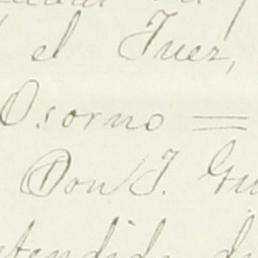 el Juez,
Osorno =
Don J. Gu
tendido d